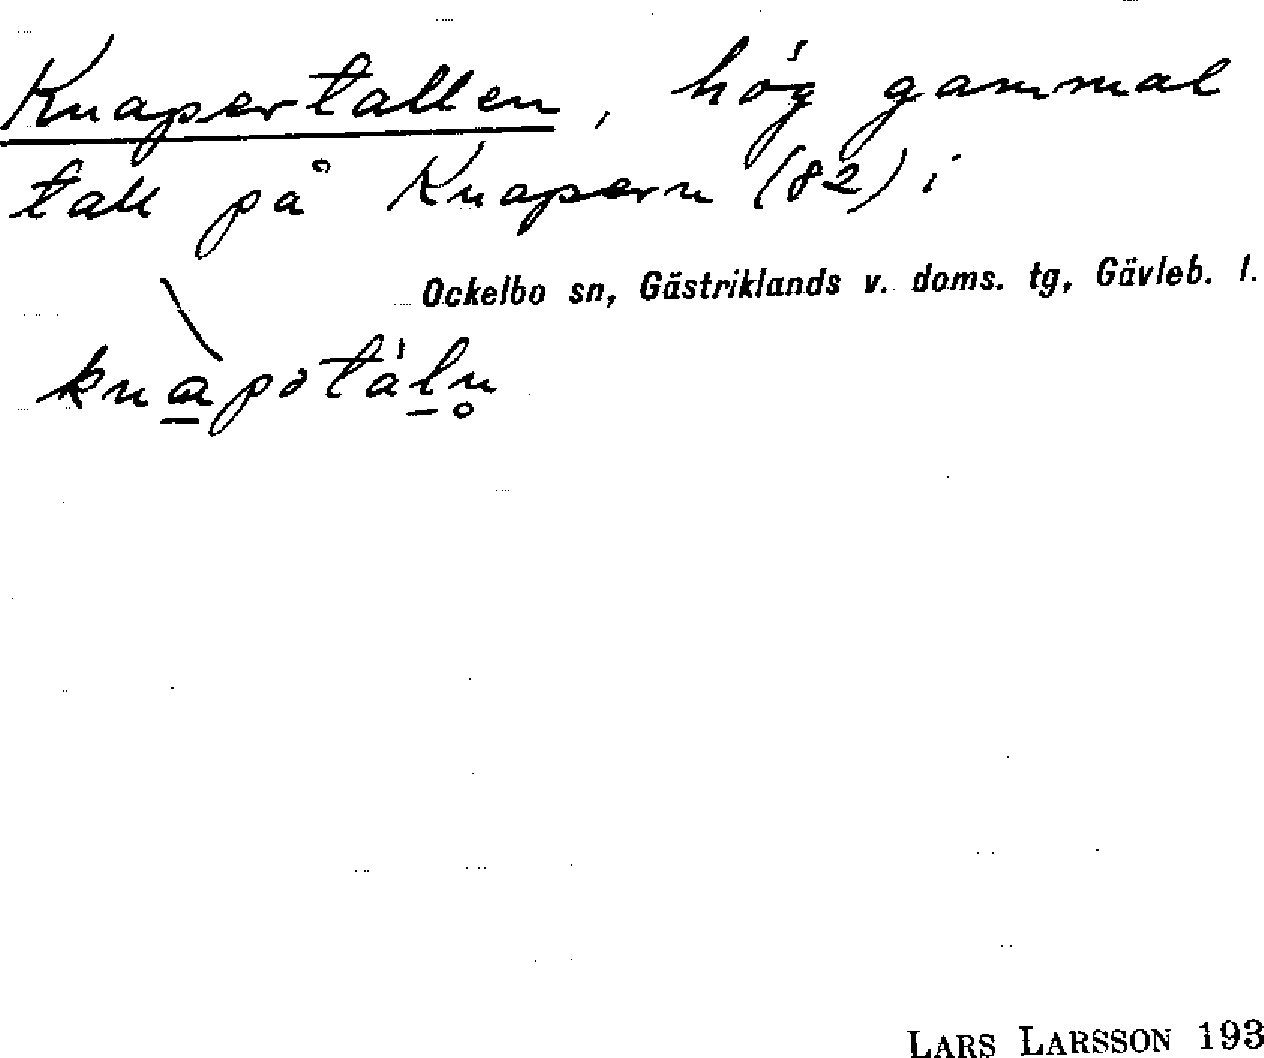 Knapertallen, hög gammal
tall på Knapern (82) i
Ockelbo sn, Gästriklands v. doms. tg, Gävleb. l.
LARS LARSSON 193